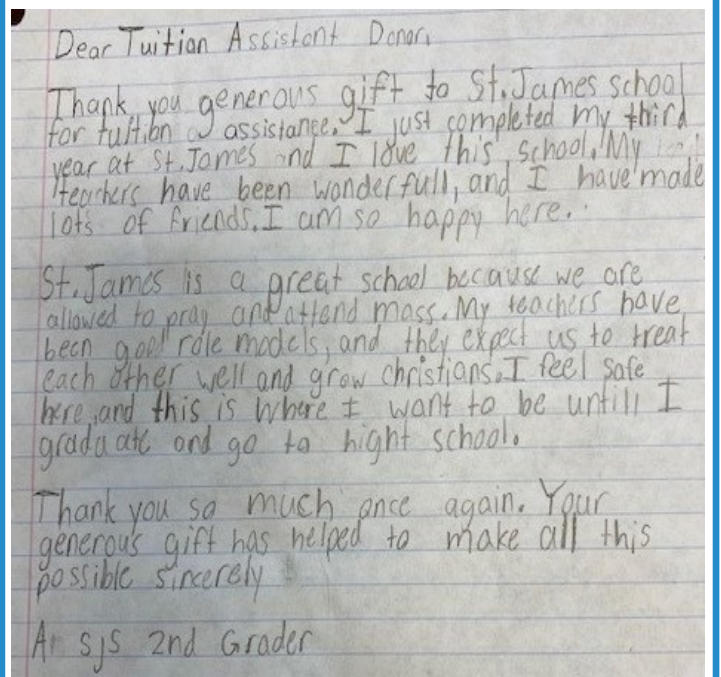 Dear Tuitian Assistant Donor,
Thank you generous gift to St. James school
for tuition assistance. I just completed my third
year at St. James and I love this school. My
teachers have been wonderfull, and I have made
lots of friends. I am so happy here.
St. James is a great school because we are
allowed to pray and attend mass. My teachers have
been good role models, and they expect us to treat
each other well and grow christians. I feel safe
here, and this is where I want to be untill I
graduate and go to hight school.
Thank you so much once again. Your
generous gift has helped to make all this
possible sincerely
A SJS 2nd Grader